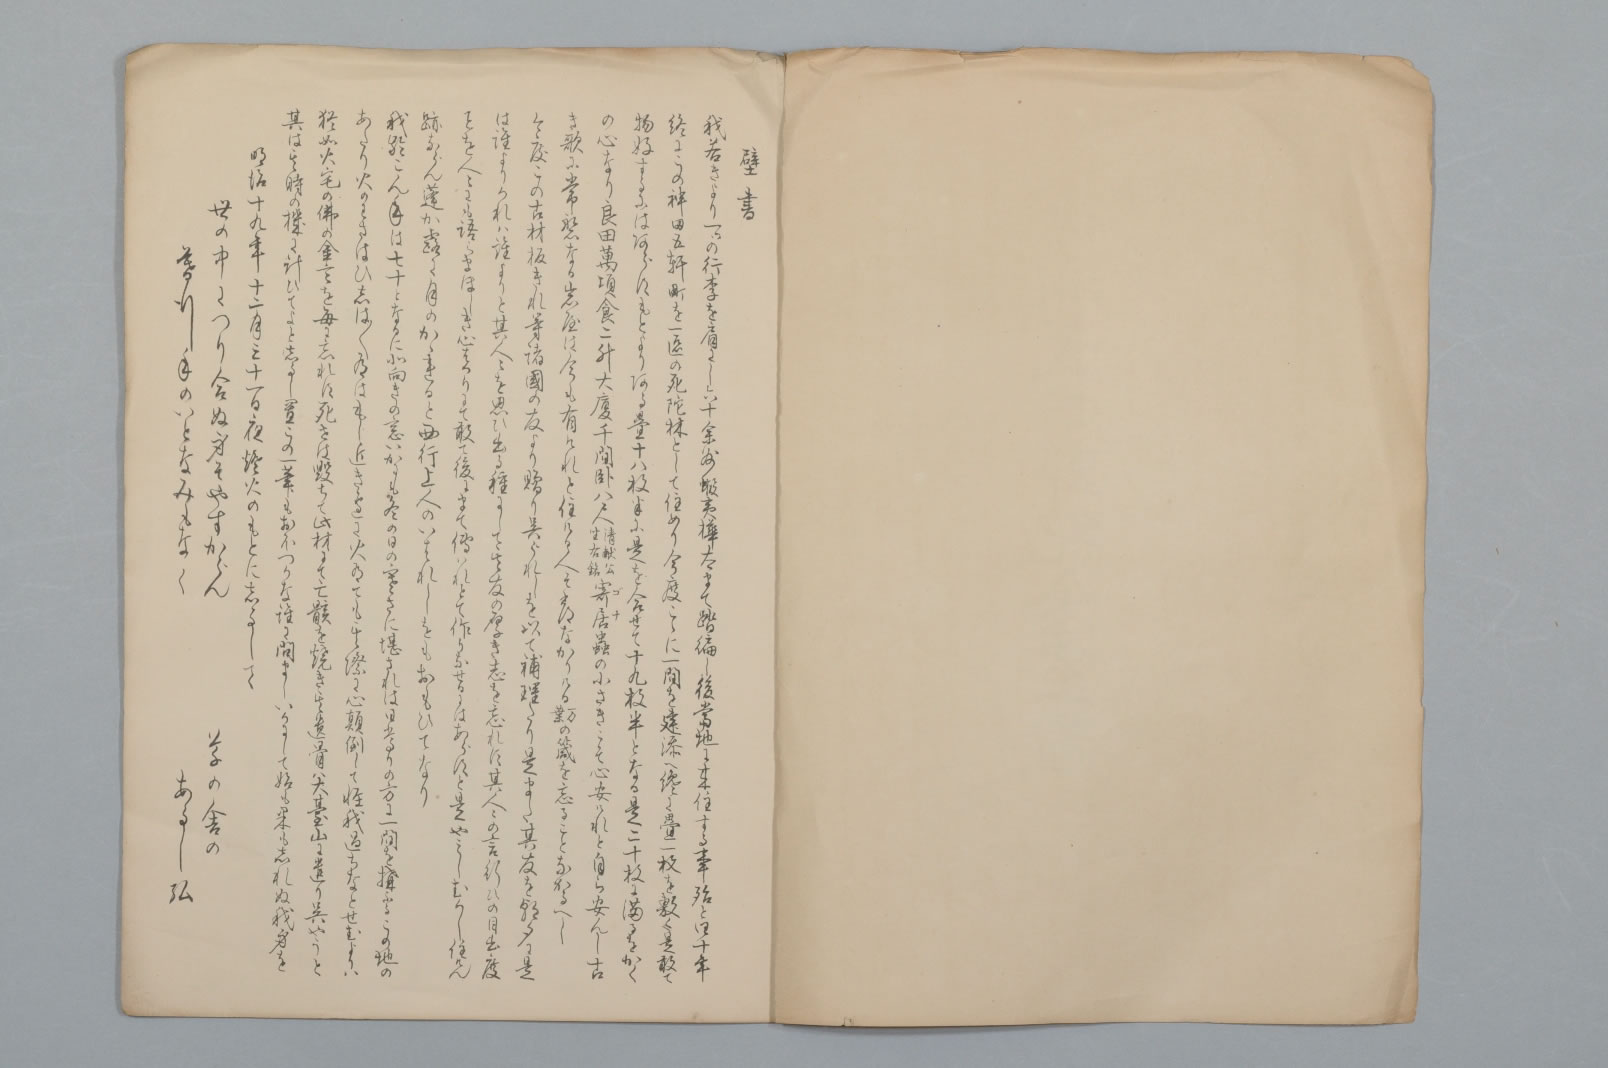 壁書
我若きより一つの行李を肩にし六十余州蝦夷樺太まて踏徧し後当地に来住する事殆と四十年
終にこの神田五軒町を一区の死陀林として住めり今度こゝに一間を建添へ纔に畳一枚を敷く是敢て
物好するにはあらすもとよりある畳十八枚半に是を合せて十九枚半となる是二十枚に満るをかく
の心なり良田萬頃食二升大厦千間臥八尺人 清献公 座右銘 寄居蟲 ゴナ の小さきこそ心安けれと自ら安んし古
き歌に常盤なる岩屋は今も有けれと住ける人そ常なかりける万葉の箴を忘ることなかるへし
今度この古材板きれ等諸國の友より贈り呉られしを以て補理たり是また其友を朝夕に是
は誰よりくれハ誰よりと其人々を思ひ出る種にして其友の厚き志を忘れす其人々の言行ひの目出度
ことを人々にも語らまほしき心はかりにて敢て後にまて傳はれとて作らせるにはあらすと是やこしむかし住けん
跡ならん蓮か露に月のかゝれると西行上人のいはれしをもおもひてなり
我齢こん年は七十となるに北向きの窓いかにも冬の日の寒さに堪されは日当りの方に一間を構ふるこの地の
あたり火のわさはひしは〱有はもし近き邊に火有ても其際に心顛倒して怪我過ちなとせむよりハ
猶如火宅の佛の金言を毎に忘れす死さは毀ちて此材にて亡骸を焼き其遺骨は大臺山に遣り呉やうと
其はその時の機に計ひてよとしるし置この一筆もおほつかな誰に問ましいかにして始も果もしれぬ我身を
明治十九年十二月三十一日夜燈火のもとにしるして
世の中につり合ぬ身そやすからん
暮行年のいとなみもなく
草の舎の
あるし 弘